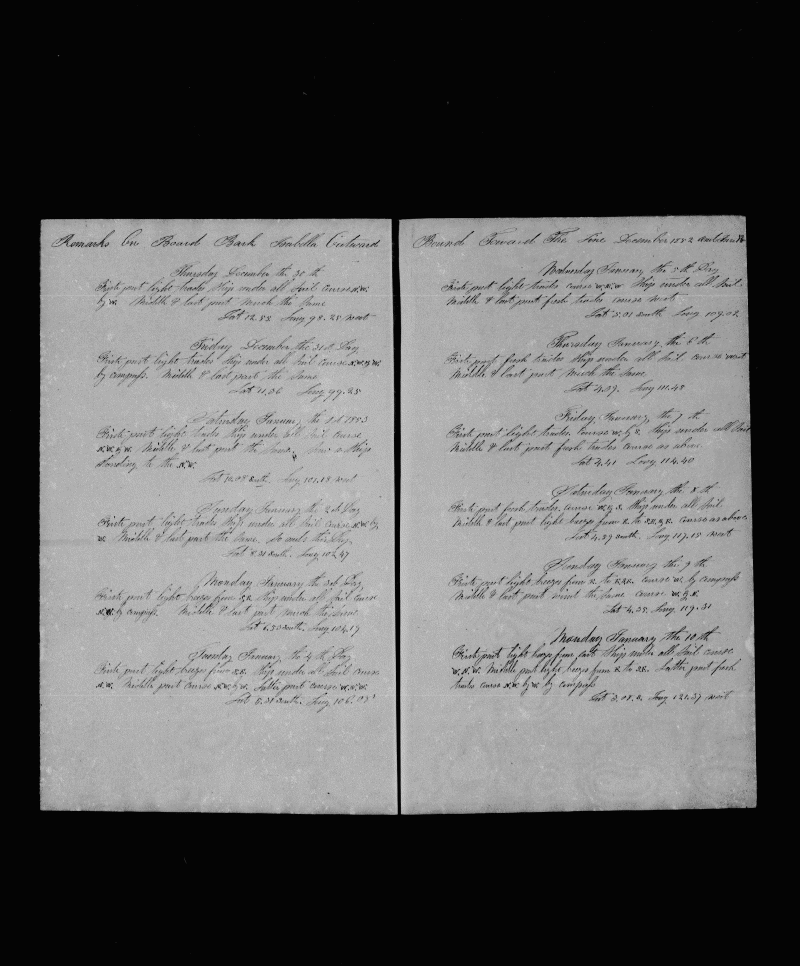 Remarks On Board Bark Isabella Outward
Thursday December the 30 th
First part light trades Ship under all Sail course N.W.
by W. Middle & last part much the same
Lat 12.53 Long 98.25 West
Friday December the 31st Day
First part light trades Ship under all Sail course N.W. by W.
by compass. Middle & last part the same
Lat 11.36 Long 99.25
Saturday January the 1st 1853
First part light trades Ship under all Sail course
N.W. by W. Middle & last part the same. Saw a Ship
standing to the N.W.
Lat 10.08 South Long 101.18 West
Sunday January the 2d Day
First part light trades Ship under all Sail course N.W. by
W. Middle & last part the same. So ends this Day
Lat 8.31 South. Long 102.47
Monday January the 3d Day
First part light breeze from Ship under all Sail course
N.W. by compass. Middle & last part much the same
Lat 6.50 South. Long 104.17
Tuesday January the 4 th Day
First part light breeze from Ship under all Sail course
N.W. Middle part course N.W. by W. Latter part course W.N.W.
Lat 5.31 South. Long 106.03
Bound Toward The Line December 1852
Wednesday January the 5 th Day
First part light trades course W.N.W Ship under all Sail
Middle & last part fresh trades course West
Lat 5.01 South Long 109.02
Thursday January the 6 th
First part fresh trades Ship under all Sail course West
Middle & last part Much the same
Lat 4.39. Long 111.48
Friday January the 7 th
First part light trades Course Ship under all Sail
Middle & last part fresh trades course as above
Lat 4.41 Long 114.40
Saturday January the 8 th
First part fresh trades course Ship under all Sail
Middle & last part light breeze from to course as above
Lat 4.39 South Long 117.15 West
Sunday January the 9 th
First part light breeze from to course W. by compass
Middle & last part the same course
Lat 4.35. Long 119.31
Monday January the 10 th
First part light breeze from Ship under all Sail course
W.N.W. Middle part light breeze from to Latter part fresh
trades course N.W. by W. by compass
Lat 3.08 S. Long 122.37 West